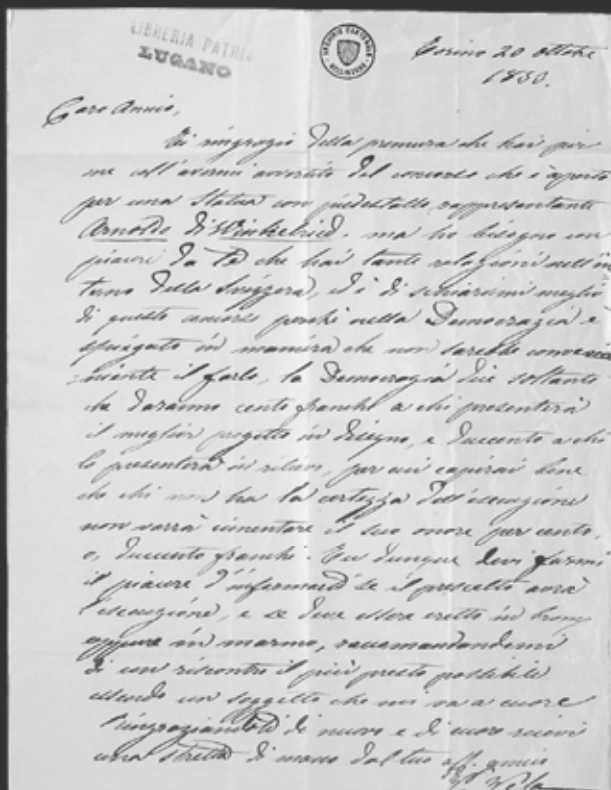 LIBRERIA PATRIA
LUGANO
Torino 20 ottobre
1853.
Caro Amico,
Ti ringrazio della premura che hai per
me coll'avermi avvertito del concorso che è aperto
per una statua con piedestallo rappresentante
Arnoldo di Winkelried. ma ho bisogno un
piacere da te che hai tante relazioni nell'in
terno della Svizzera, ed è di schiarirmi meglio
di questo concorso perchè nella Democrazia è
spiegato in maniera che non sarebbe conveni
niente il farlo, la Democrazia dice soltanto
che daranno cento franchi a chi presenterà
il miglior progetto in disegno, e duecento a chi
lo presenterà in rilievo, per cui capirai bene
che chi non ha la certezza dell'esecuzione
non vorrà cimentare il suo onore per cento,
o, duecento franchi. Tu dunque devi farmi
il piacere d'informarti se il prescelto avrà
l'esecuzione, e se deve essere eretto in bronzo
oppure in marmo, raccomandandomi
di un riscontro il più presto possibile
essendo un soggetto che mi va a cuore
Ringraziandoti di nuovo e di cuore ricevi
una stretta di mano dal tuo aff. amico
Vela